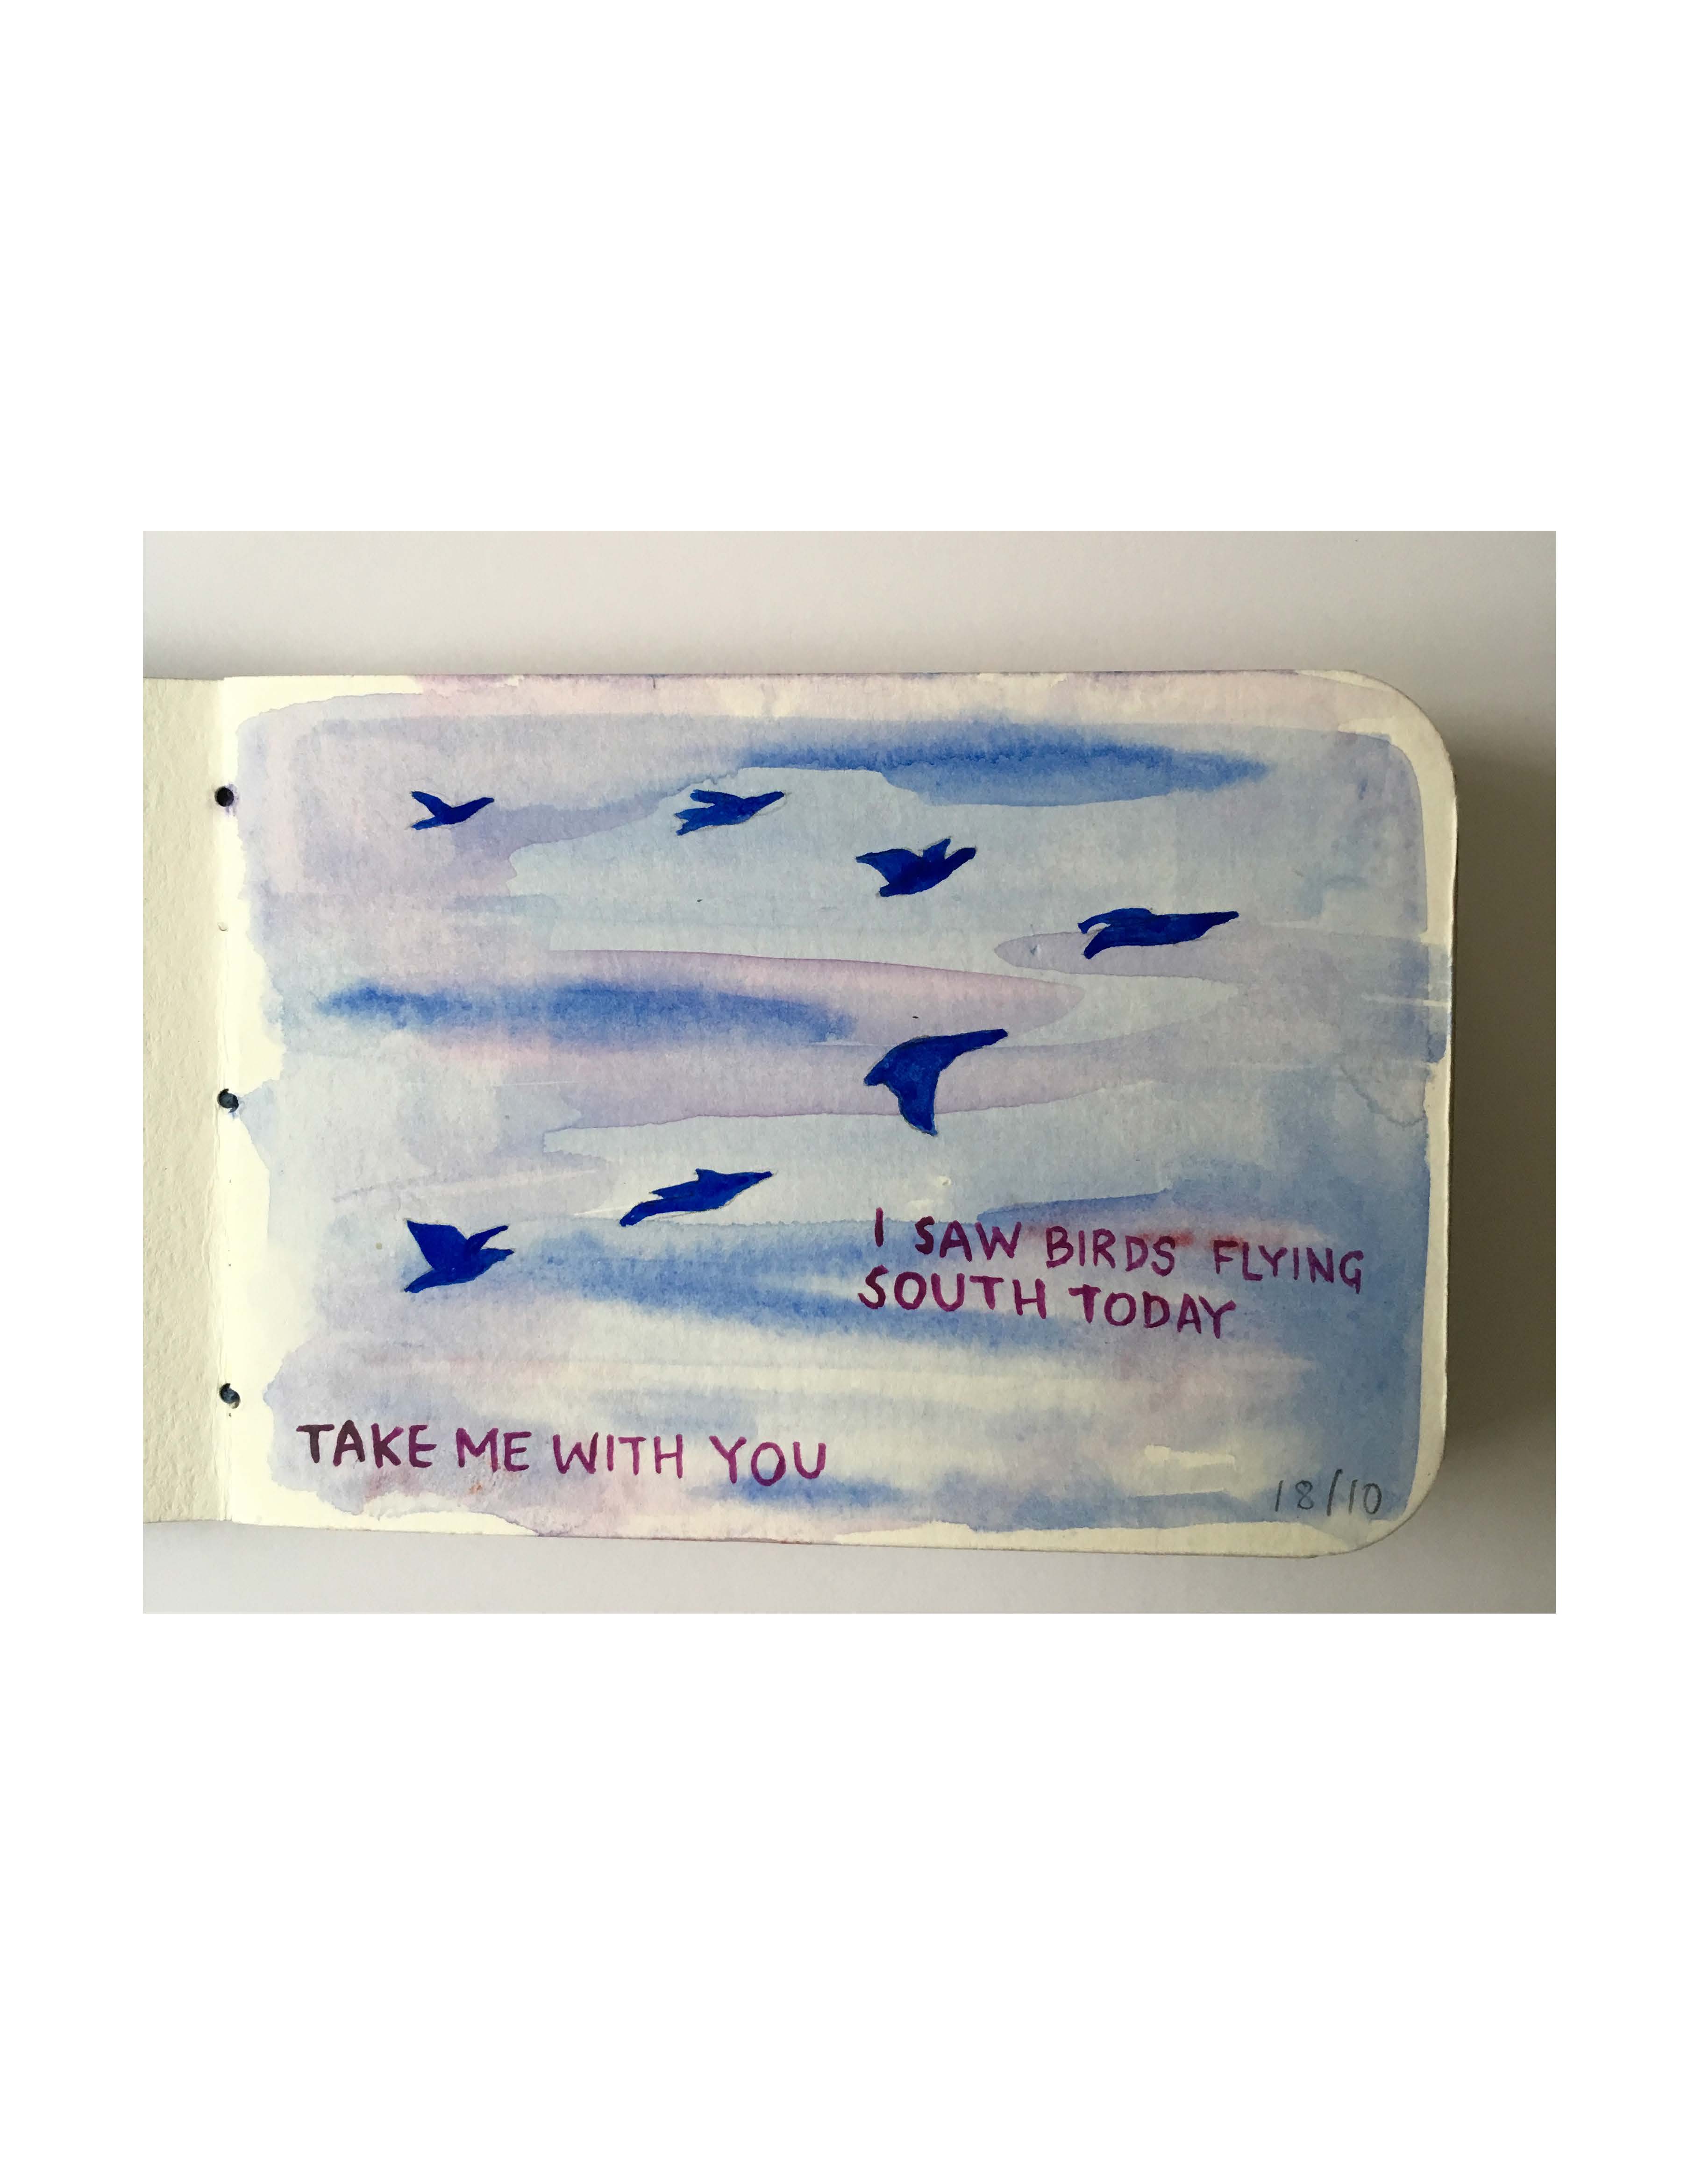 I SAW BIRDS FLYING
SOUTH TODAY
TAKE ME WITH YOU
18/10